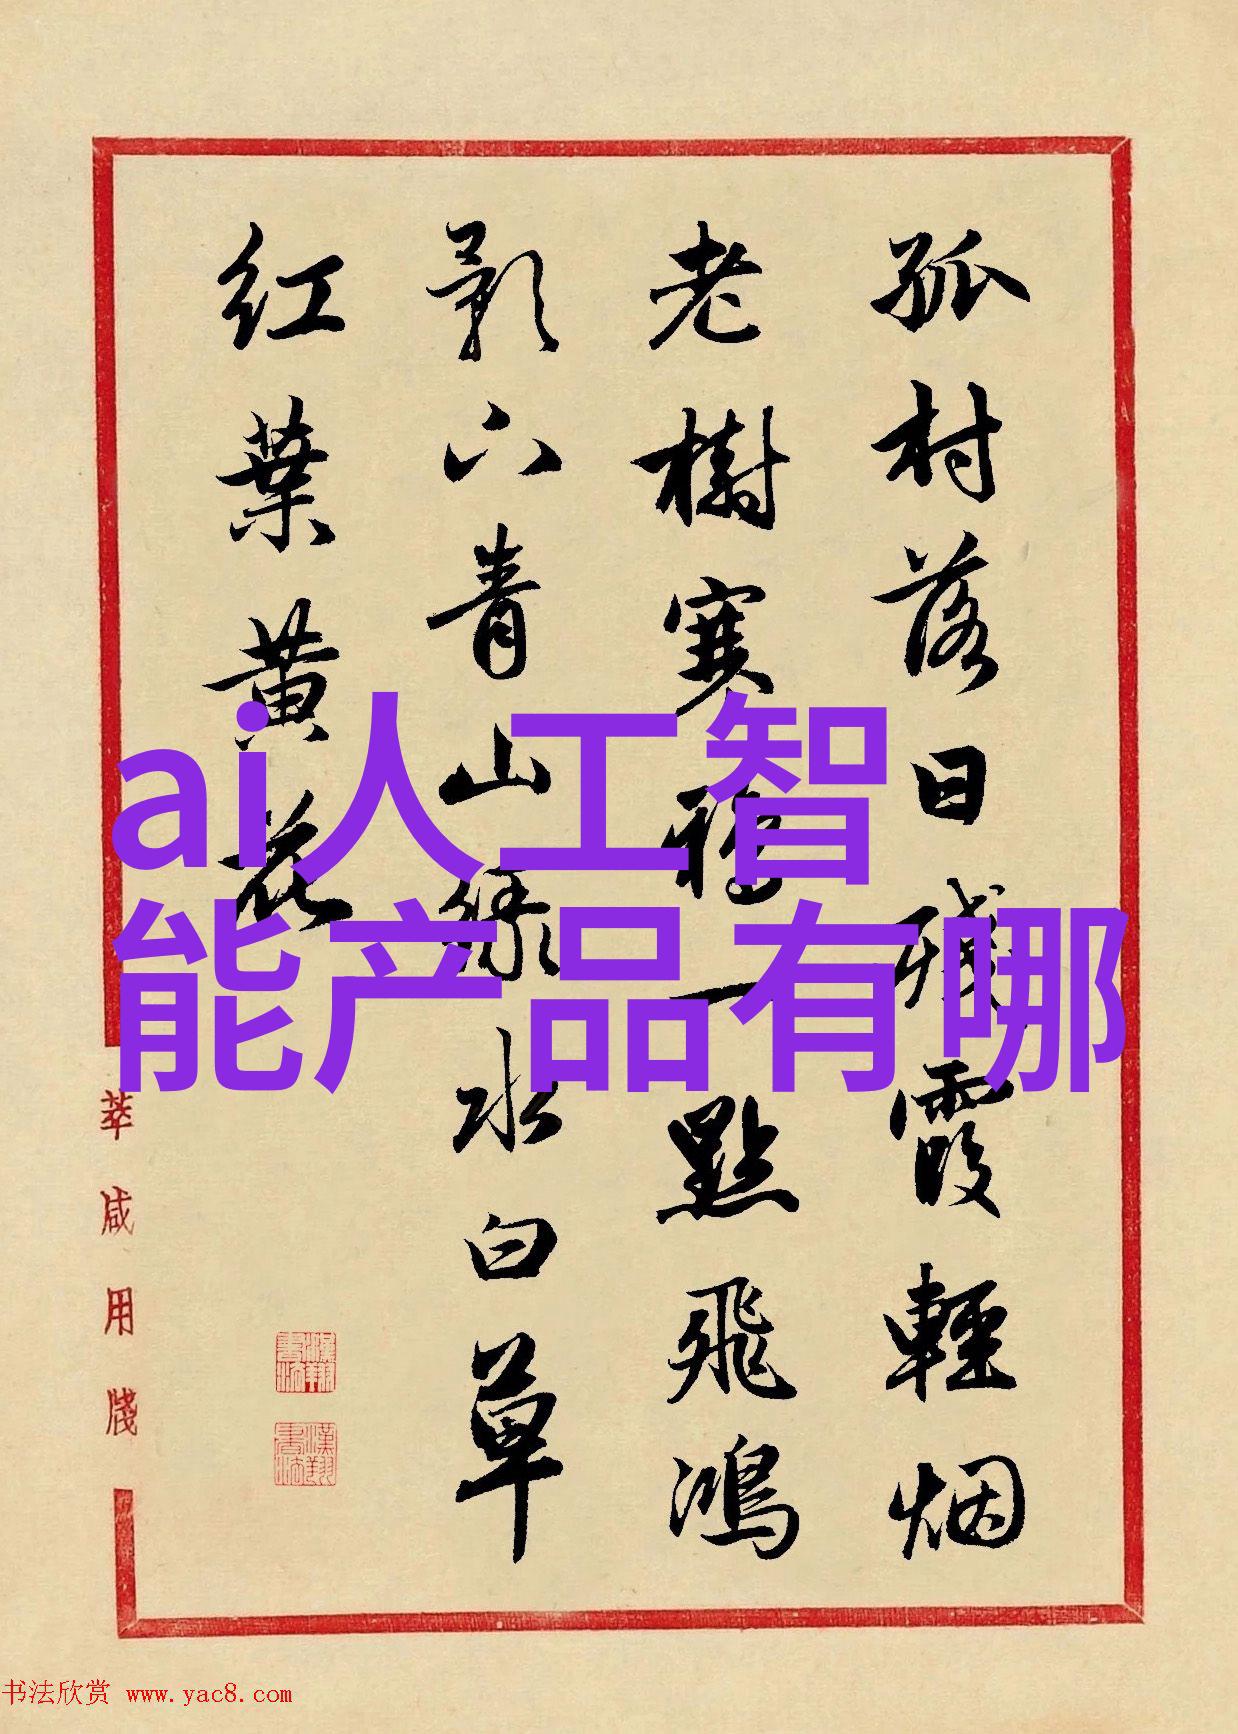 孤村落日残霞輕烟
老樹寒鴉一點飛鴻
影下青山緑水白草
红葉黄花
ai人工智
能产品有哪
萃成用牋
書法欣赏 www.yac8.com